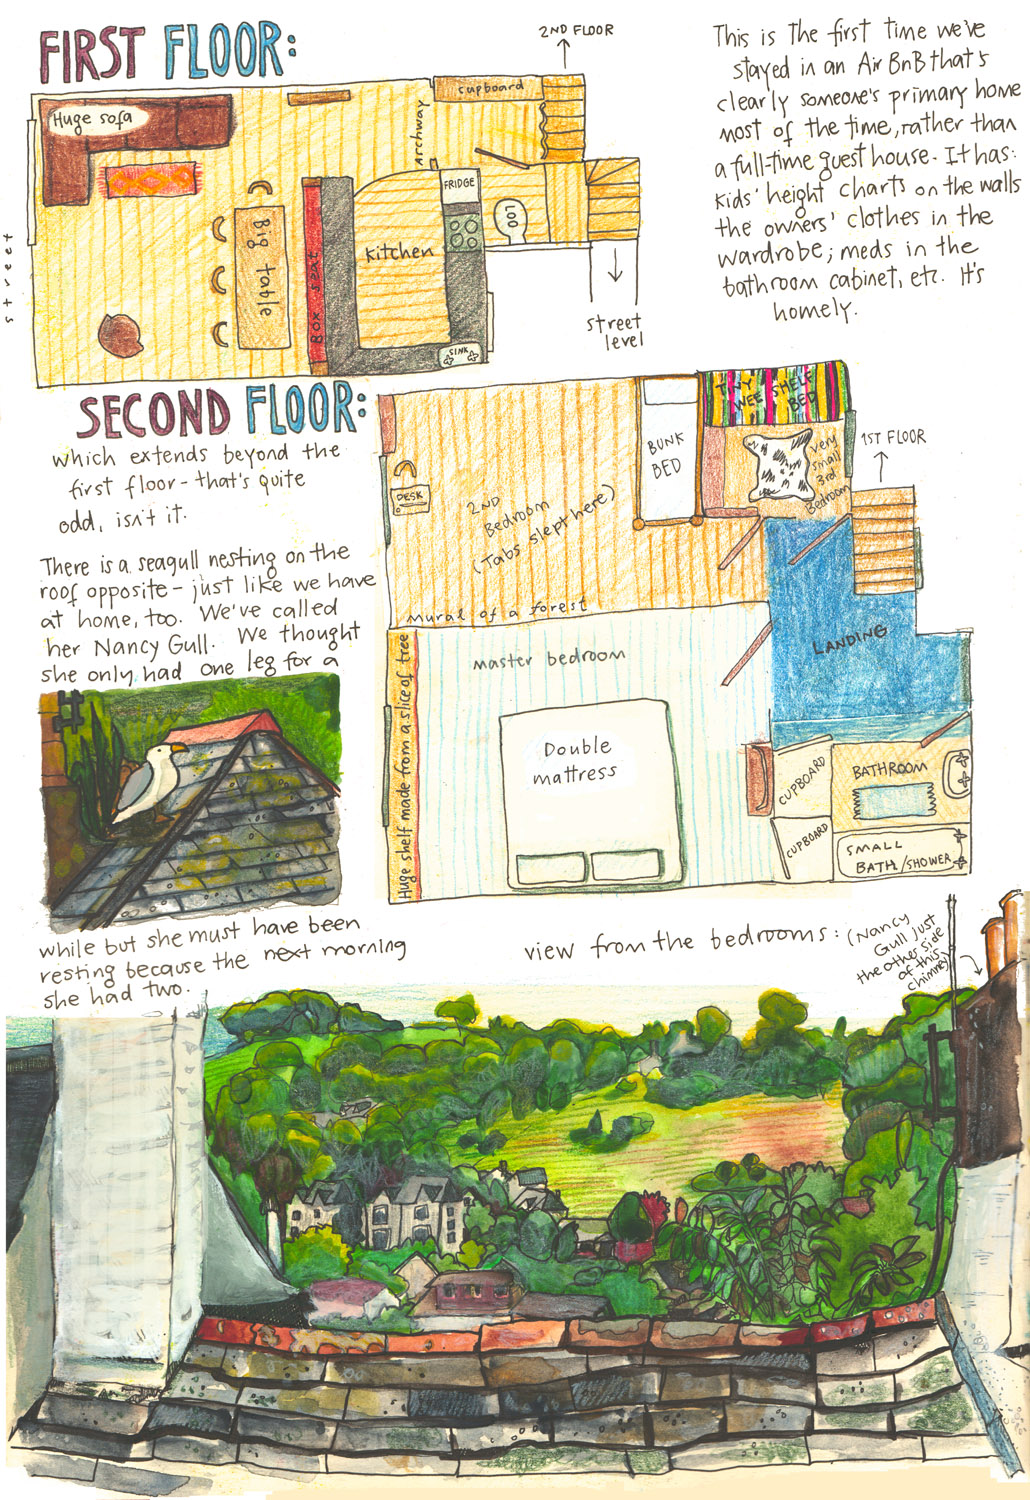 FIRST FLOOR:
2ND FLOOR
cupboard
Huge sofa
Archway
FRIDGE
LOO
Big table
Kitchen
Box seat
SINK
street
street
level
This is the first time we've
stayed in an Air BnB that's
clearly someone's primary home
most of the time, rather than
a full-time guest house. It has:
kids' height charts on the walls
the owners' clothes in the
wardrobe; meds in the
bathroom cabinet, etc. It's
homely.
SECOND FLOOR:
which extends beyond the
first floor - that's quite
odd, isn't it.
There is a seagull nesting on the
roof opposite - just like we have
at home, too. We've called
her Nancy Gull. We thought
she only had one leg for a
while but she must have been
resting because the next morning
she had two.
TINY
WEE SHELF
BED
BUNK
BED
very
small
3rd
Bedroom
1ST FLOOR
DESK
2ND
Bedroom
(Tabs slept here)
Mural of a forest
LANDING
master bedroom
Huge shelf made from a slice of tree
Double
mattress
CUPBOARD
BATHROOM
CUPBOARD
SMALL
BATH/SHOWER
view from the bedrooms:
(Nancy
Gull just
the other side
of this
chimney)